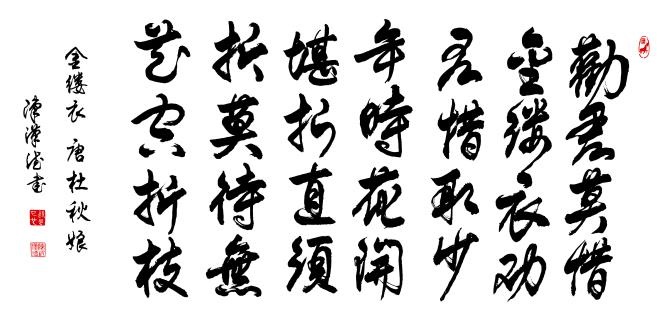 勸君莫惜
金缕衣劝
君惜取少
年時花開
堪折直須
折莫待無
花空折枝
金缕衣 唐杜秋娘